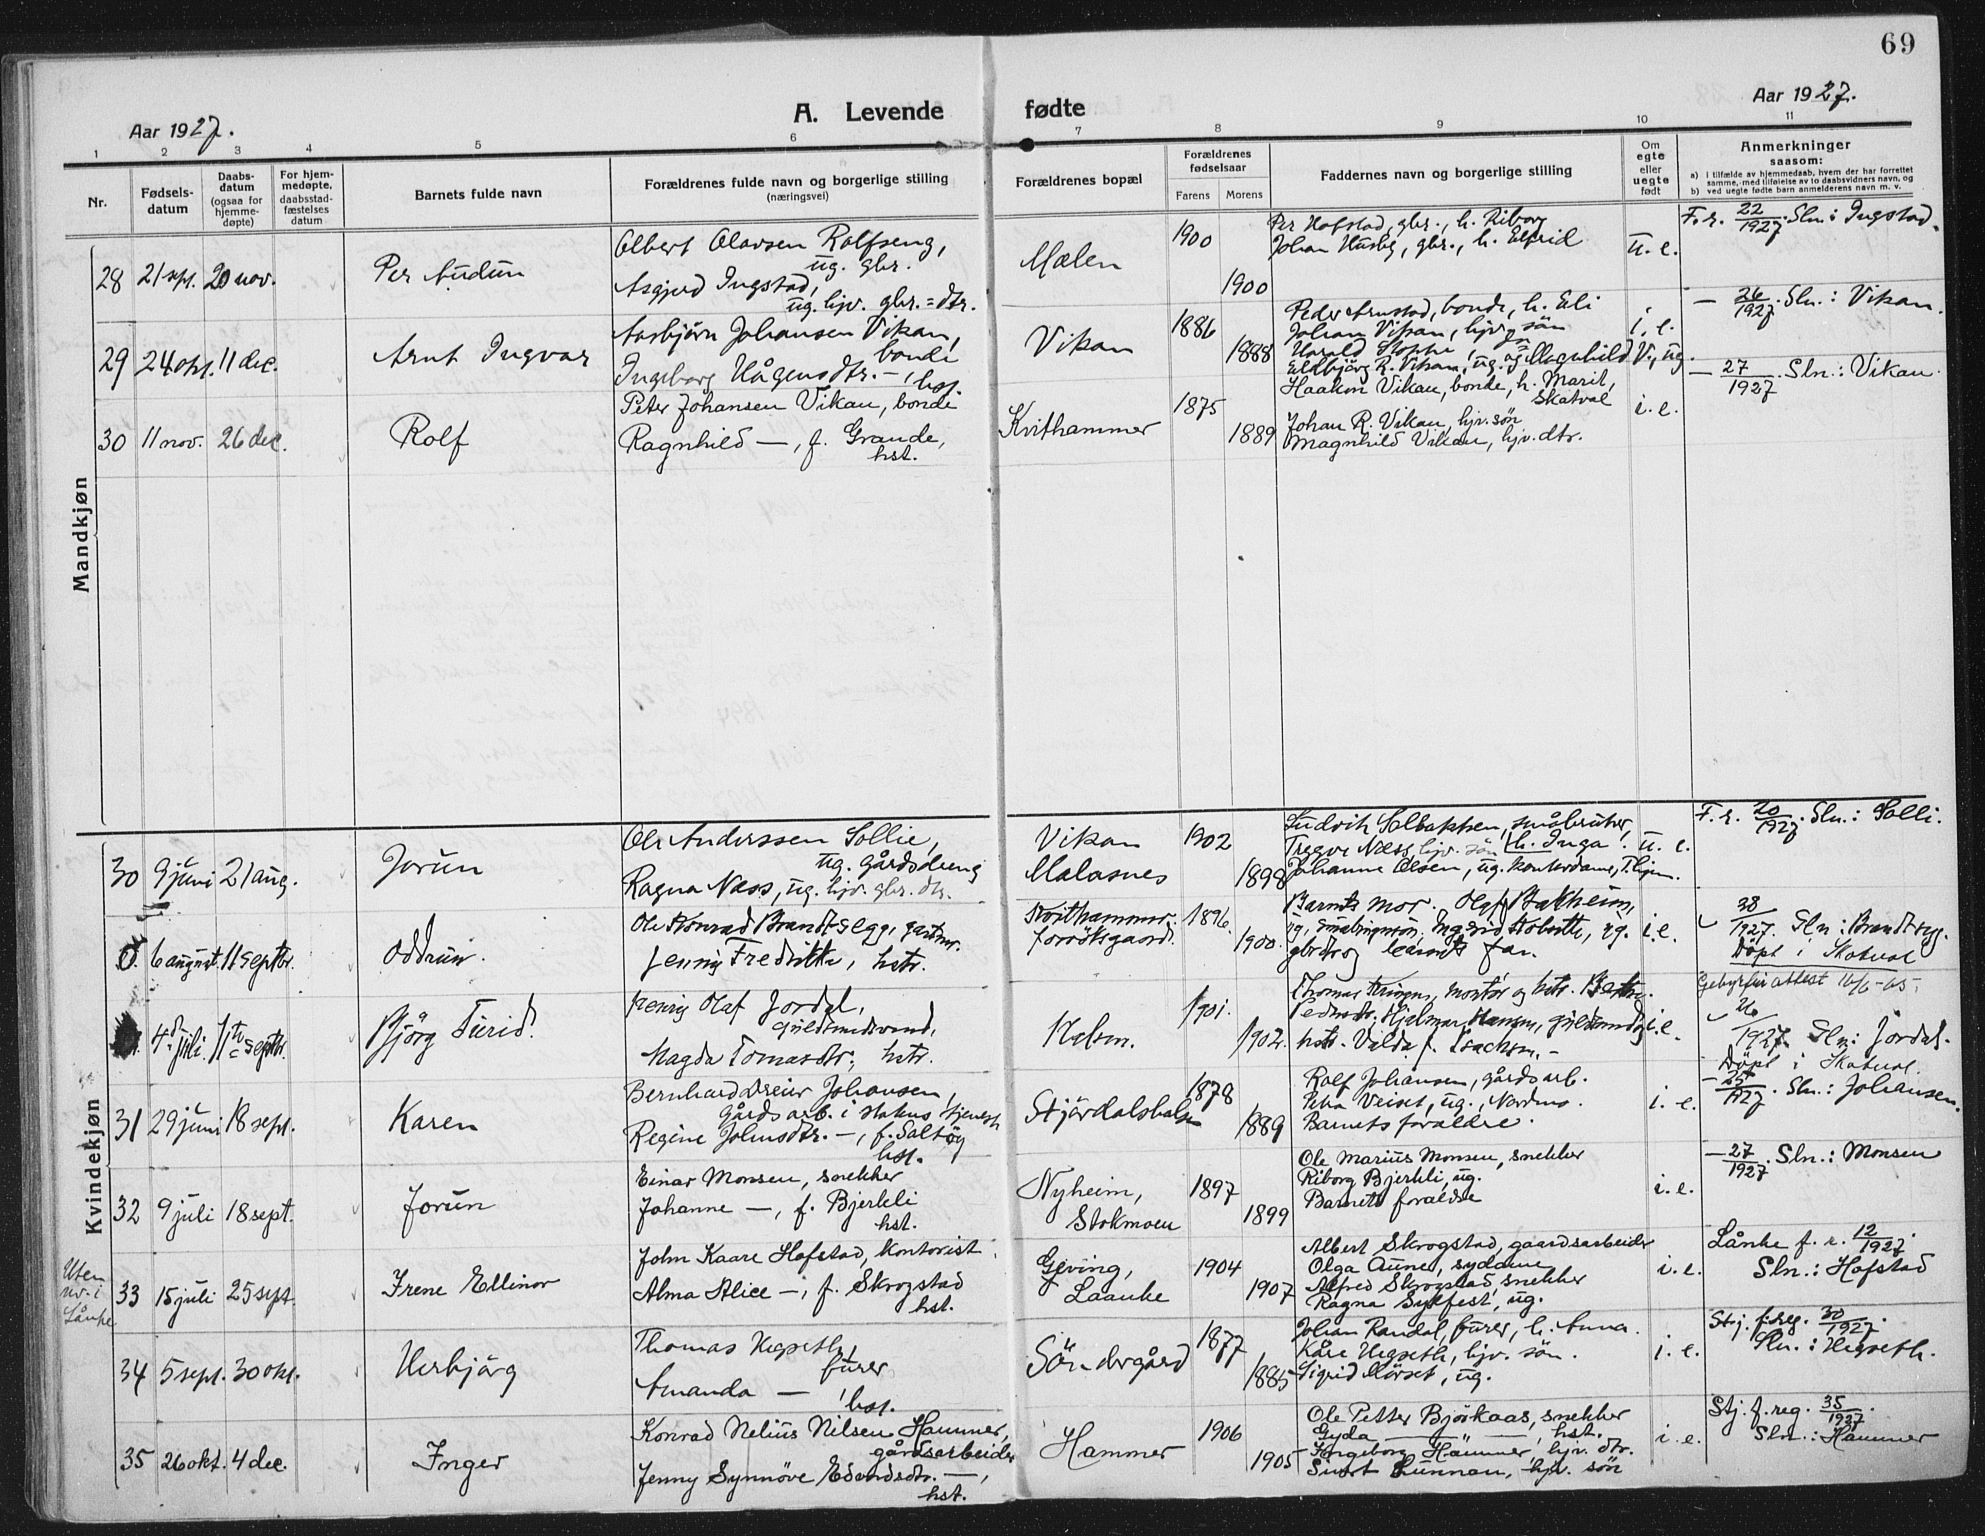 69
Aar 1927.
A. Levende fødte
Aar 1927.
1 2 3 4 5 6 7 8 9 10 11
Nr.
Fødsels-
datum
Daabs-
datum
(ogsaa for
hjemme-
døpte)
For hjem-
medøpte,
daabsstad-
fæstelses
datum
Barnets fulde navn
Forældrenes fulde navn og borgerlige stilling
(næringsvei)
Forældrenes bopæl
Forældrenes
fødselsaar
Farens Morens
Faddernes navn og borgerlige stilling
Om
egte
eller
uegte
født
Anmerkninger
saasom:
a) i tilfælde av hjemmedaab, hvem der har forrettet
samme, med tilføielse av to daabsvidners navn, og
b) ved uegte fødte barn anmelderens navn m. v.
Mandkjøn
28 21 sept. 20 nov.
Per Audun
Albert Olavsen Rolfseng,
ug. gbr.
Asgjerd Ingstad,
ug. hjv. gbr. = dtr.
Mælen
1900
1900
Per Hofstad, gbr., h. Riborg
Johan Husby, gbr., h. Elfrid
u. e.
F. r. 22/1927. Sln: Ingstad.
29 24 okt. 11 dec.
Arnt Ingvar
Asbjörn Johansen Vikan,
bonde
Ingeborg Hågensdtr. —, hst.
Vikan
1886
1888
Peder Arnstad, bonde, h. Eli
Johan Vikan, hjv. sön
Harald Stokke,
Eldbjörg R. Vikan, ug. og Magnhild V., ug.
i. e.
— 26/1927. Sln.: Vikan.
30 11 nov. 26 dec.
Rolf
Peter Johansen Vikan, bonde
Ragnhild —, f. Grande,
hst.
Kvithammer
1875
1889
Haakon Vikan, bonde, h. Marit,
Skatval
Johan R. Vikan, hjv. sön
Magnhild Vikan, hjv. dtr.
i. e.
— 27/1927. Sln.: Vikan.
Kvindekjøn
30 9 juni 21 aug.
Jorun
Ole Anderssen Sollie,
ug. gårdsdreng
Ragna Næss, ug. hjv. gbr. dtr.
Vikan
Malasnes
1902
1898
Ludvik Solbakken, småbruker,
h. Inga.
Tregve Næss, hjv. sön
Johanne Olsen, ug. kontordame,
u. e.
F. r. 20/1927. Sln.: Solli.
6 august. 11 septbr.
Oddrun.
Ole Konrad Brandtsegg, gartner.
Jenny Fredrikke, hstr.
Kvithammer
forsöksgaard.
1896.
1900.
Barnets mor. Olaf Bakheim,
barnets far.
i. e.
38/1927. Sln: Brandtsegg.
Döpt i Skatval
4de juli. 11te septbr.
Bjørg Turid.
Henrig Olaf Jordal,
guldsmedsvend,
Magda Tomasdtr; hstr.
1901.
1902.
i. e.
Gebyrfri attest 16/6-65.
26/1927. Sln: Jördal.
Döpt i Skatval.
31 29 juni 18 sept.
Karen
Bernhard Dreier Johansen,
Gårdsarb. i statens tjeneste
Regine Johnsdtr. —, f. Saltöy
hst.
Stjördalshalsen
1878
1889
Rolf Johansen, gårdsarb.
Petra Veiset, ug.,
Barnets foræeldre.
i. e.
— 25/1927. Sln.: Johansen.
32 9 juli 18 sept.
Jorun
Einar Monsen, snekker
Johanne —, f. Bjerkli
hst.
Nyheim,
Stokmoen
1897
1899
Ole Marius Monsen, snekker
Riborg Bjerkli, ug.
Barnets foræeldre
i. e.
— 27/1927. Sln.: Monsen
Uten
nr. i
Lånke
33 15 juli 25 sept.
Irene Ellinor
John Kaare Hofstad, kontorist
Alma Alice —, f. Skrogstad
hst.
Geving,
Laanke
1904
1907
Albert Skrogstad, gaardsarbeider
Olga Aune, sydame
Alfred Skrogstad, snekker
Ragna Sylfest, ug.
i. e.
Lånke f. r. 12/1927.
Sln.: Hofstad
34 5 sept. 30 okt.
Herbjörg
Thomas Hegseth,
furer
Amanda —, hst.
Söndergård
1877
1885
Johan Randal, furer, h. Anna.
Kåre Hegseth, hjv. sön.
Sigrid Mörset, ug.
i. e.
Stj. f. reg. 30/1927.
Sln.: Hegseth.
35 26 okt. 4 dec.
Inger
Konrad Nelius Nilsen Hammer,
gårdsarbeider
Jenny Synnöve Edvardsdtr. —,
hst.
Hammer
1906
1905
Ole Petter Björkaas, snekker
Gyda — —, hst.
Ingeborg Hammer, hjv. dtr.
Sivert Lunnan, hjv. sön
i. e.
Stj. f. reg. 35/1927.
Sln.: Hammer